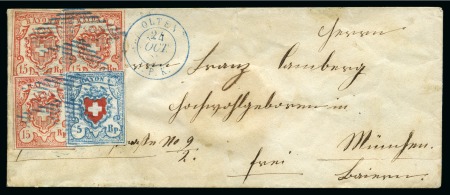 OLTEN
24
OCT
RAYON
15 Rp.
15 Rp.
15 Rp.
RAYON
5 Rp.
Herrn
Herrn Franz Lamberg
hochwohlgeboren in
No 9/2. frei München.
Baiern.